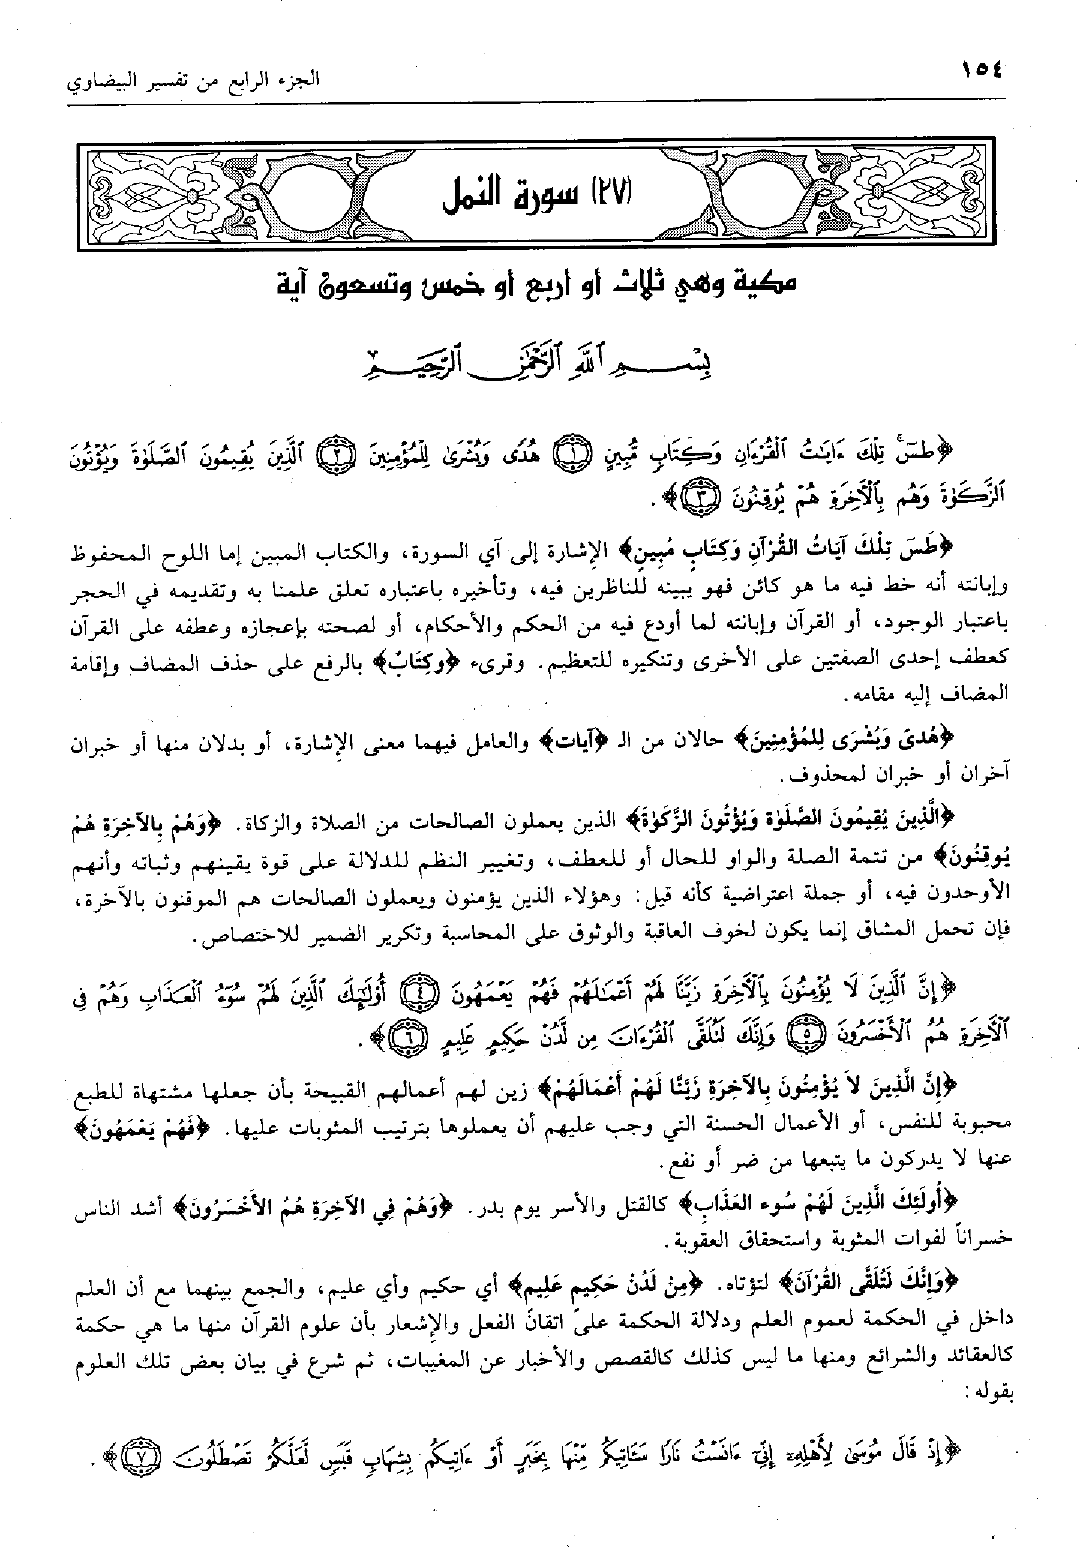 ١٥٤
الجزء الرابع من تفسير البيضاوي
(٢٧) سورة النمل
مكية وهي ثلاث أو أربع أو خمس وتسعون آية
بِسْمِ ٱللَّهِ ٱلرَّحْمَٰنِ ٱلرَّحِيمِ
﴿طسٓ تِلْكَ ءَايَٰتُ ٱلْقُرْءَانِ وَكِتَابٍ مُّبِينٍ ﴿١﴾ هُدًى وَبُشْرَىٰ لِلْمُؤْمِنِينَ ﴿٢﴾ ٱلَّذِينَ يُقِيمُونَ ٱلصَّلَوٰةَ وَيُؤْتُونَ
ٱلزَّكَوٰةَ وَهُم بِٱلْأَخِرَةِ هُمْ يُوقِنُونَ ﴿٣﴾﴾.
﴿طَسَ تِلْكَ آيَاتُ القُرْآنِ وَكِتَابٍ مُبِينٍ﴾ الإشارة إلى آي السورة، والكتاب المبين إما اللوح المحفوظ
وإبانته أنه خط فيه ما هو كائن فهو يبينه للناظرين فيه، وتأخيره باعتباره تعلق علمنا به وتقديمه في الحجر
باعتبار الوجود، أو القرآن وإبانته لما أودع فيه من الحكم والأحكام، أو لصحته بإعجازه وعطفه على القرآن
كعطف إحدى الصفتين على الأخرى وتنكيره للتعظيم. وقرىء ﴿وكِتَابٌ﴾ بالرفع على حذف المضاف وإقامة
المضاف إليه مقامه.
﴿هُدىً وَبُشْرَى لِلمُؤْمِنِينَ﴾ حالان من الـ ﴿آيات﴾ والعامل فيهما معنى الإشارة، أو بدلان منها أو خبران
آخران أو خبران لمحذوف.
﴿الَّذِينَ يُقِيمُونَ الصَّلَوٰةَ وَيُؤْتُونَ الزَّكَوٰةَ﴾ الذين يعملون الصالحات من الصلاة والزكاة. ﴿وَهُمْ بِالآخِرَةِ هُمْ
يُوقِنُونَ﴾ من تتمة الصلة والواو للحال أو للعطف، وتغيير النظم للدلالة على قوة يقينهم وثباته وأنهم
الأوحدون فيه، أو جملة اعتراضية كأنه قيل: وهؤلاء الذين يؤمنون ويعملون الصالحات هم الموقنون بالآخرة،
فإن تحمل المشاق إنما يكون لخوف العاقبة والوثوق على المحاسبة وتكرير الضمير للاختصاص.
﴿إِنَّ ٱلَّذِينَ لَا يُؤْمِنُونَ بِٱلْأَخِرَةِ زَيَّنَّا لَهُمْ أَعْمَٰلَهُمْ فَهُمْ يَعْمَهُونَ ﴿٤﴾ أُوْلَٰٓئِكَ ٱلَّذِينَ لَهُمْ سُوٓءُ ٱلْعَذَابِ وَهُمْ فِى
ٱلْأَخِرَةِ هُمُ ٱلْأَخْسَرُونَ ﴿٥﴾ وَإِنَّكَ لَتُلَقَّى ٱلْقُرْءَانَ مِن لَّدُنْ حَكِيمٍ عَلِيمٍ ﴿٦﴾﴾.
﴿إِنَّ الَّذِينَ لاَ يُؤْمِنُونَ بِالآخِرَةِ زَيَّنَّا لَهُمْ أَعْمَالَهُمْ﴾ زين لهم أعمالهم القبيحة بأن جعلها مشتهاة للطبع
محبوبة للنفس، أو الأعمال الحسنة التي وجب عليهم أن يعملوها بترتيب المثوبات عليها. ﴿فَهُمْ يَعْمَهُونَ﴾
عنها لا يدركون ما يتبعها من ضر أو نفع.
﴿أُولَئِكَ الَّذِينَ لَهُمْ سُوء العَذَابِ﴾ كالقتل والأسر يوم بدر. ﴿وَهُمْ فِي الآخِرَةِ هُمُ الأَخْسَرُونَ﴾ أشد الناس
خسراناً لفوات المثوبة واستحقاق العقوبة.
﴿وَإِنَّكَ لَتُلَقَّى القُرْآنَ﴾ لتؤتاه. ﴿مِنْ لَدُنْ حَكِيمٍ عَلِيمٍ﴾ أي حكيم وأي عليم، والجمع بينهما مع أن العلم
داخل في الحكمة لعموم العلم ودلالة الحكمة على اتقان الفعل والإشعار بأن علوم القرآن منها ما هي حكمة
كالعقائد والشرائع ومنها ما ليس كذلك كالقصص والأخبار عن المغيبات، ثم شرع في بيان بعض تلك العلوم
بقوله:
﴿إِذْ قَالَ مُوسَىٰ لِأَهْلِهِۦٓ إِنِّىٓ ءَانَسْتُ نَارًا سَـَٔاتِيكُم مِّنْهَا بِخَبَرٍ أَوْ ءَاتِيكُم بِشِهَابٍ قَبَسٍ لَّعَلَّكُمْ تَصْطَلُونَ ﴿٧﴾﴾.